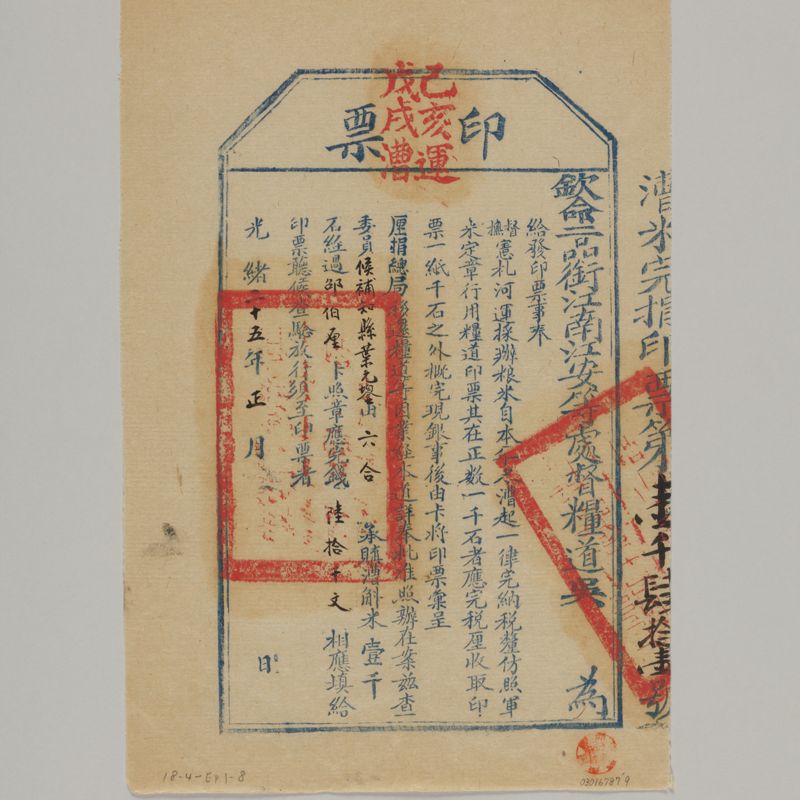 漕米完捐印票第壹千肆拾壹號
印票
己亥運
戊戌漕
欽命二品銜江南江安等處督糧道吳 為
給發印票事奉
督
撫憲札河運採辦粮米自本年冬漕起一律完納稅釐仿照軍
米定章行用糧道印票其在正数一千石者應完税厘收取印
票一紙千石之外概完現銀事後由卡將印票彙呈
厘捐總局 糧道 業經本道詳奉批准照辦在案茲查
委員候補知縣葉元 由六合 漕斛米壹千
石經過邵伯厘卡照章應完錢陸拾千文 相應填給
印票聽候查驗放行須至印票者
光緒二十五年正月 日
18-4-Er1-8
03016787'9